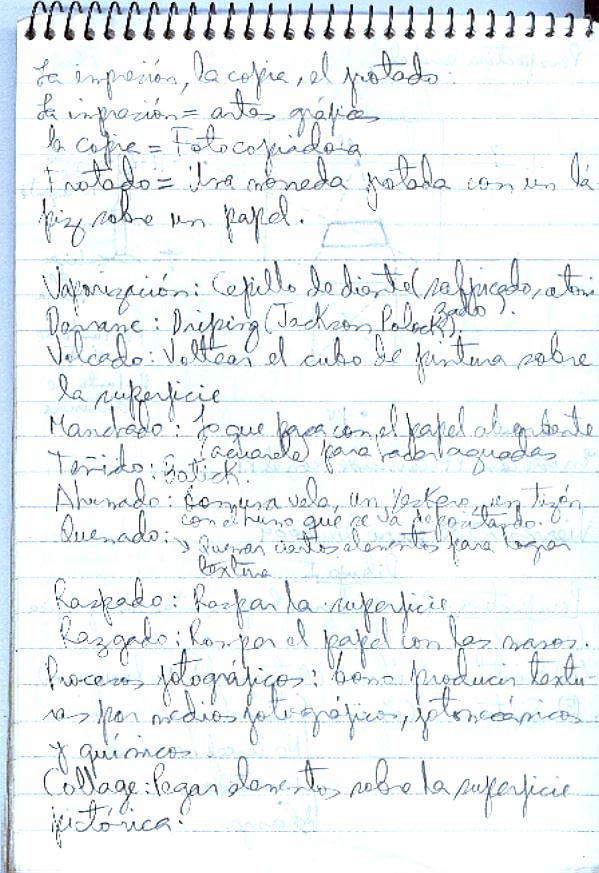 La impresión, la copia, el frotado:
La impresión = artes gráficas
la copia = Fotocopiadora
Frotado = Una moneda frotada con un lá-
piz sobre un papel.
Vaporización: Cepillo de diente (salpicado, atomi
zado).
Derrame: Driping (Jackson Polock).
Volcado: Voltear el cubo de pintura sobre
la superficie
Manchado: Lo que pasa con el papel absorbente
(acuarela) para hacer aguadas
Teñido: Batick.
Ahumado: Con una vela, un yeskero, un tizón
con el humo que se va depositando.
Quemado: Quemar ciertos elementos para lograr
textura
Raspado: Raspar la superficie
Razgado: Romper el papel con las manos.
Procesos fotográficos: Como producir textu-
ras por medios fotográficos, fotomecánicos
y químicos.
Collage: Pegar elementos sobre la superficie
pictórica.